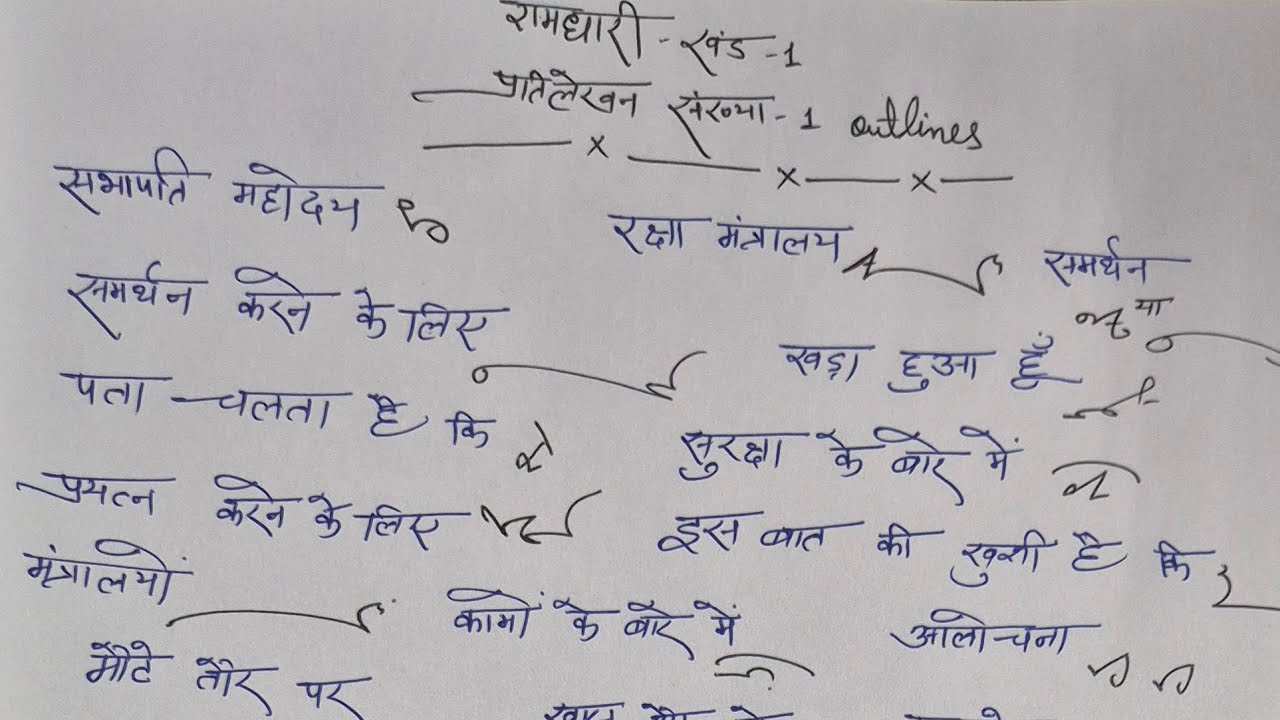 रामधारी - खंड - 1
प्रतिलेखन संख्या - 1 outlines
सभापति महोदय
रक्षा मंत्रालय
समर्थन
या
समर्थन करने के लिए
खड़ा हुआ हूँ
पता चलता है कि
सुरक्षा के बारे में
प्रयत्न करने के लिए
इस बात की खुशी है कि
मंत्रालयों
कामों के बारे में
आलोचना
मोटे तौर पर